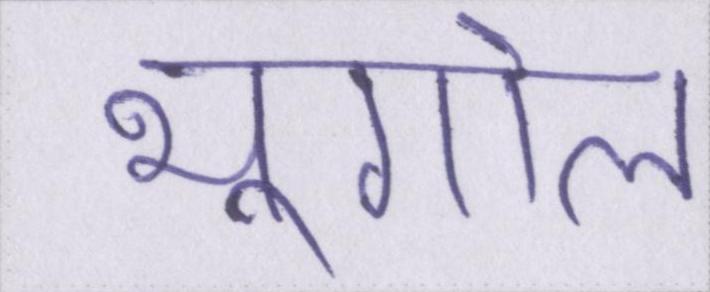 भूगोल